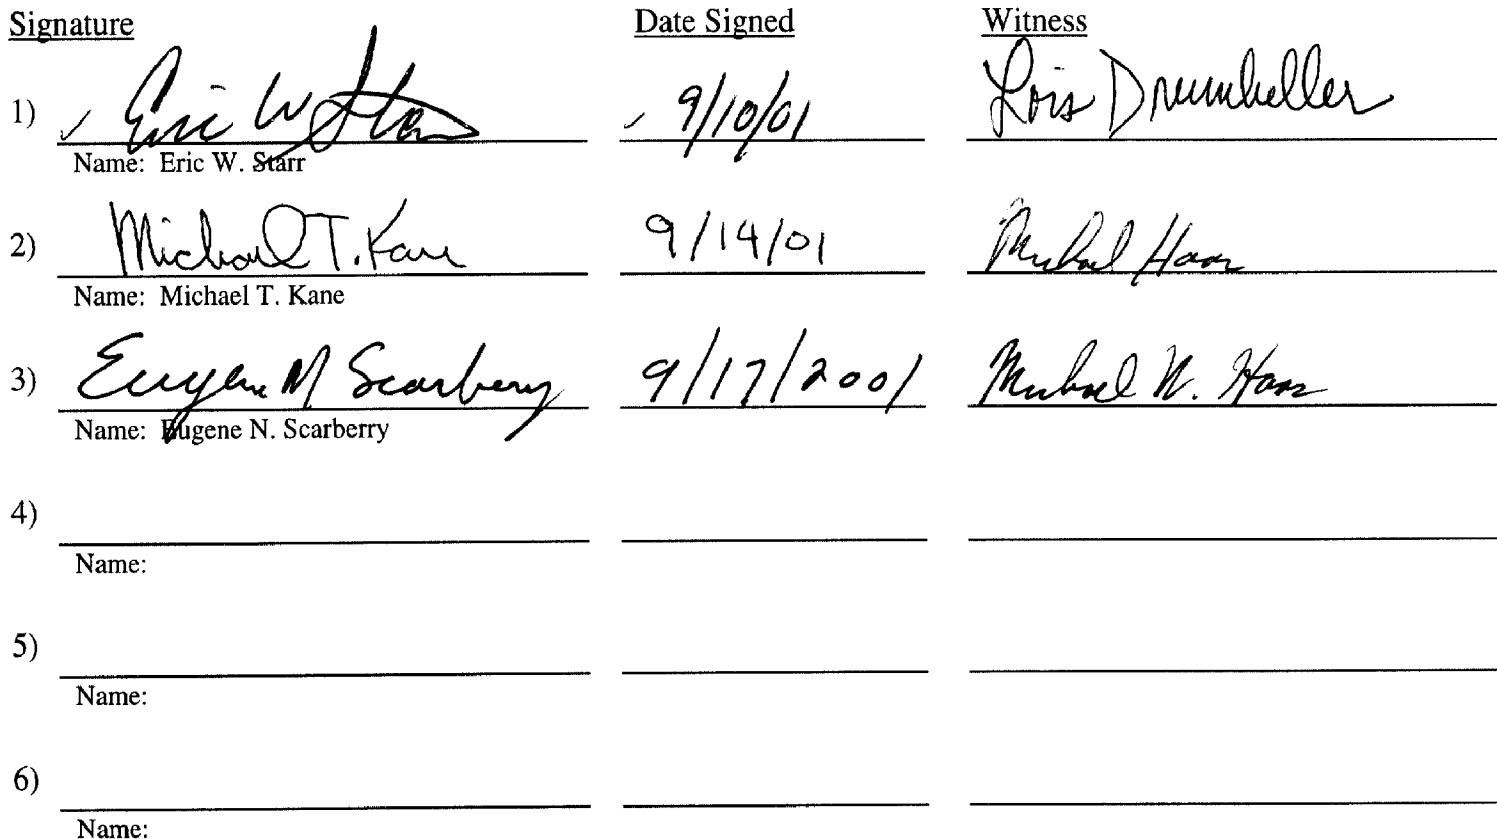 Signature Date Signed Witness
1) ✓ Eric W Starr ✓ 9/10/01 Lois Drumheller
Name: Eric W. Starr
2) Michael T. Kane 9/14/01 Michael Haas
Name: Michael T. Kane
3) Eugene N Scarberry 9/17/2001 Michael N. Haas
Name: Eugene N. Scarberry
4)
Name:
5)
Name:
6)
Name: